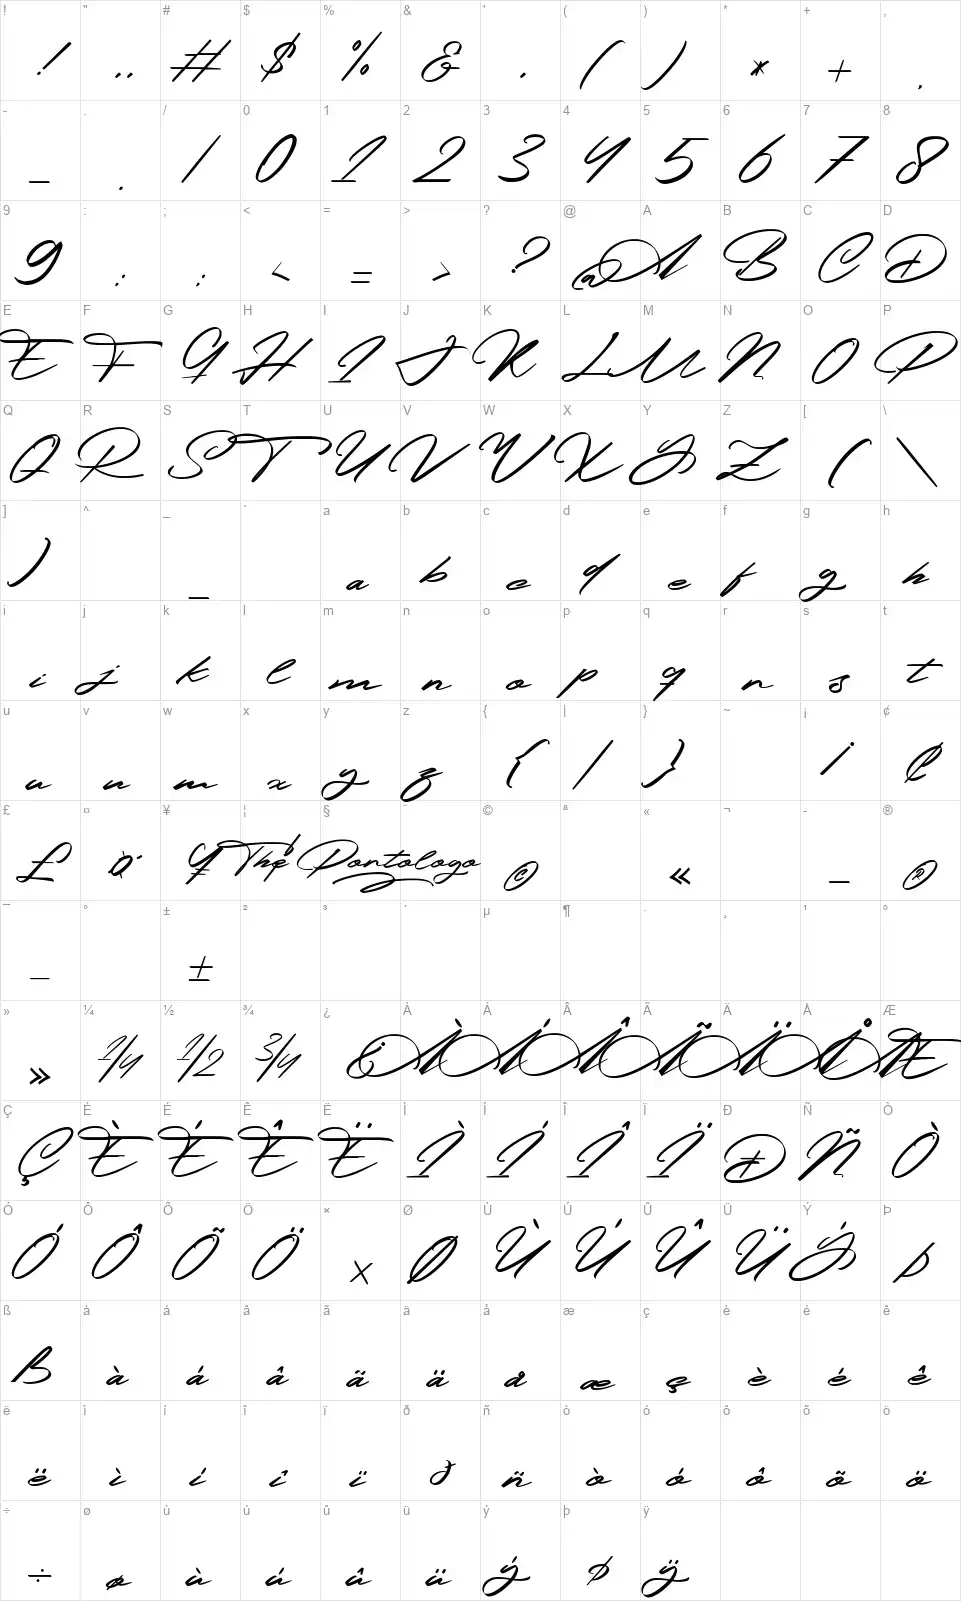 ! " # $ % & ' ( ) * + ,
! " # $ % & ' ( ) * + ,
- . / 0 1 2 3 4 5 6 7 8
- . / 0 1 2 3 4 5 6 7 8
9 : ; < = > ? @ A B C D
9 : ; < = > ? @ A B C D
E F G H I J K L M N O P
E F G H I J K L M N O P
Q R S T U V W X Y Z [ \
Q R S T U V W X Y Z [ \
] ^ _ ` a b c d e f g h
] _ a b c d e f g h
i j k l m n o p q r s t
i j k l m n o p q r s t
u v w x y z { | } ~ ¡ ¢
u v w x y z { | } ¡ ¢
£ ¤ ¥ ¦ § ¨ © ª « ¬ - ®
£ ¤ ¥ The Pontologo © « - ®
¯ ° ± ² ³ ´ µ ¶ · ¸ ¹ º
¯ ±
» ¼ ½ ¾ ¿ À Á Â Ã Ä Å Æ
» ¼ ½ ¾ ¿ À Á Â Ã Ä Å Æ
Ç È É Ê Ë Ì Í Î Ï Ð Ñ Ò
Ç È É Ê Ë Ì Í Î Ï Ð Ñ Ò
Ó Ô Õ Ö × Ø Ù Ú Û Ü Ý Þ
Ó Ô Õ Ö × Ø Ù Ú Û Ü Ý Þ
ß à á â ã ä å æ ç è é ê
ß à á â ã ä å æ ç è é ê
ë ì í î ï ð ñ ò ó ô õ ö
ë ì í î ï ð ñ ò ó ô õ ö
÷ ø ù ú û ü ý þ ÿ
÷ ø ù ú û ü ý þ ÿ